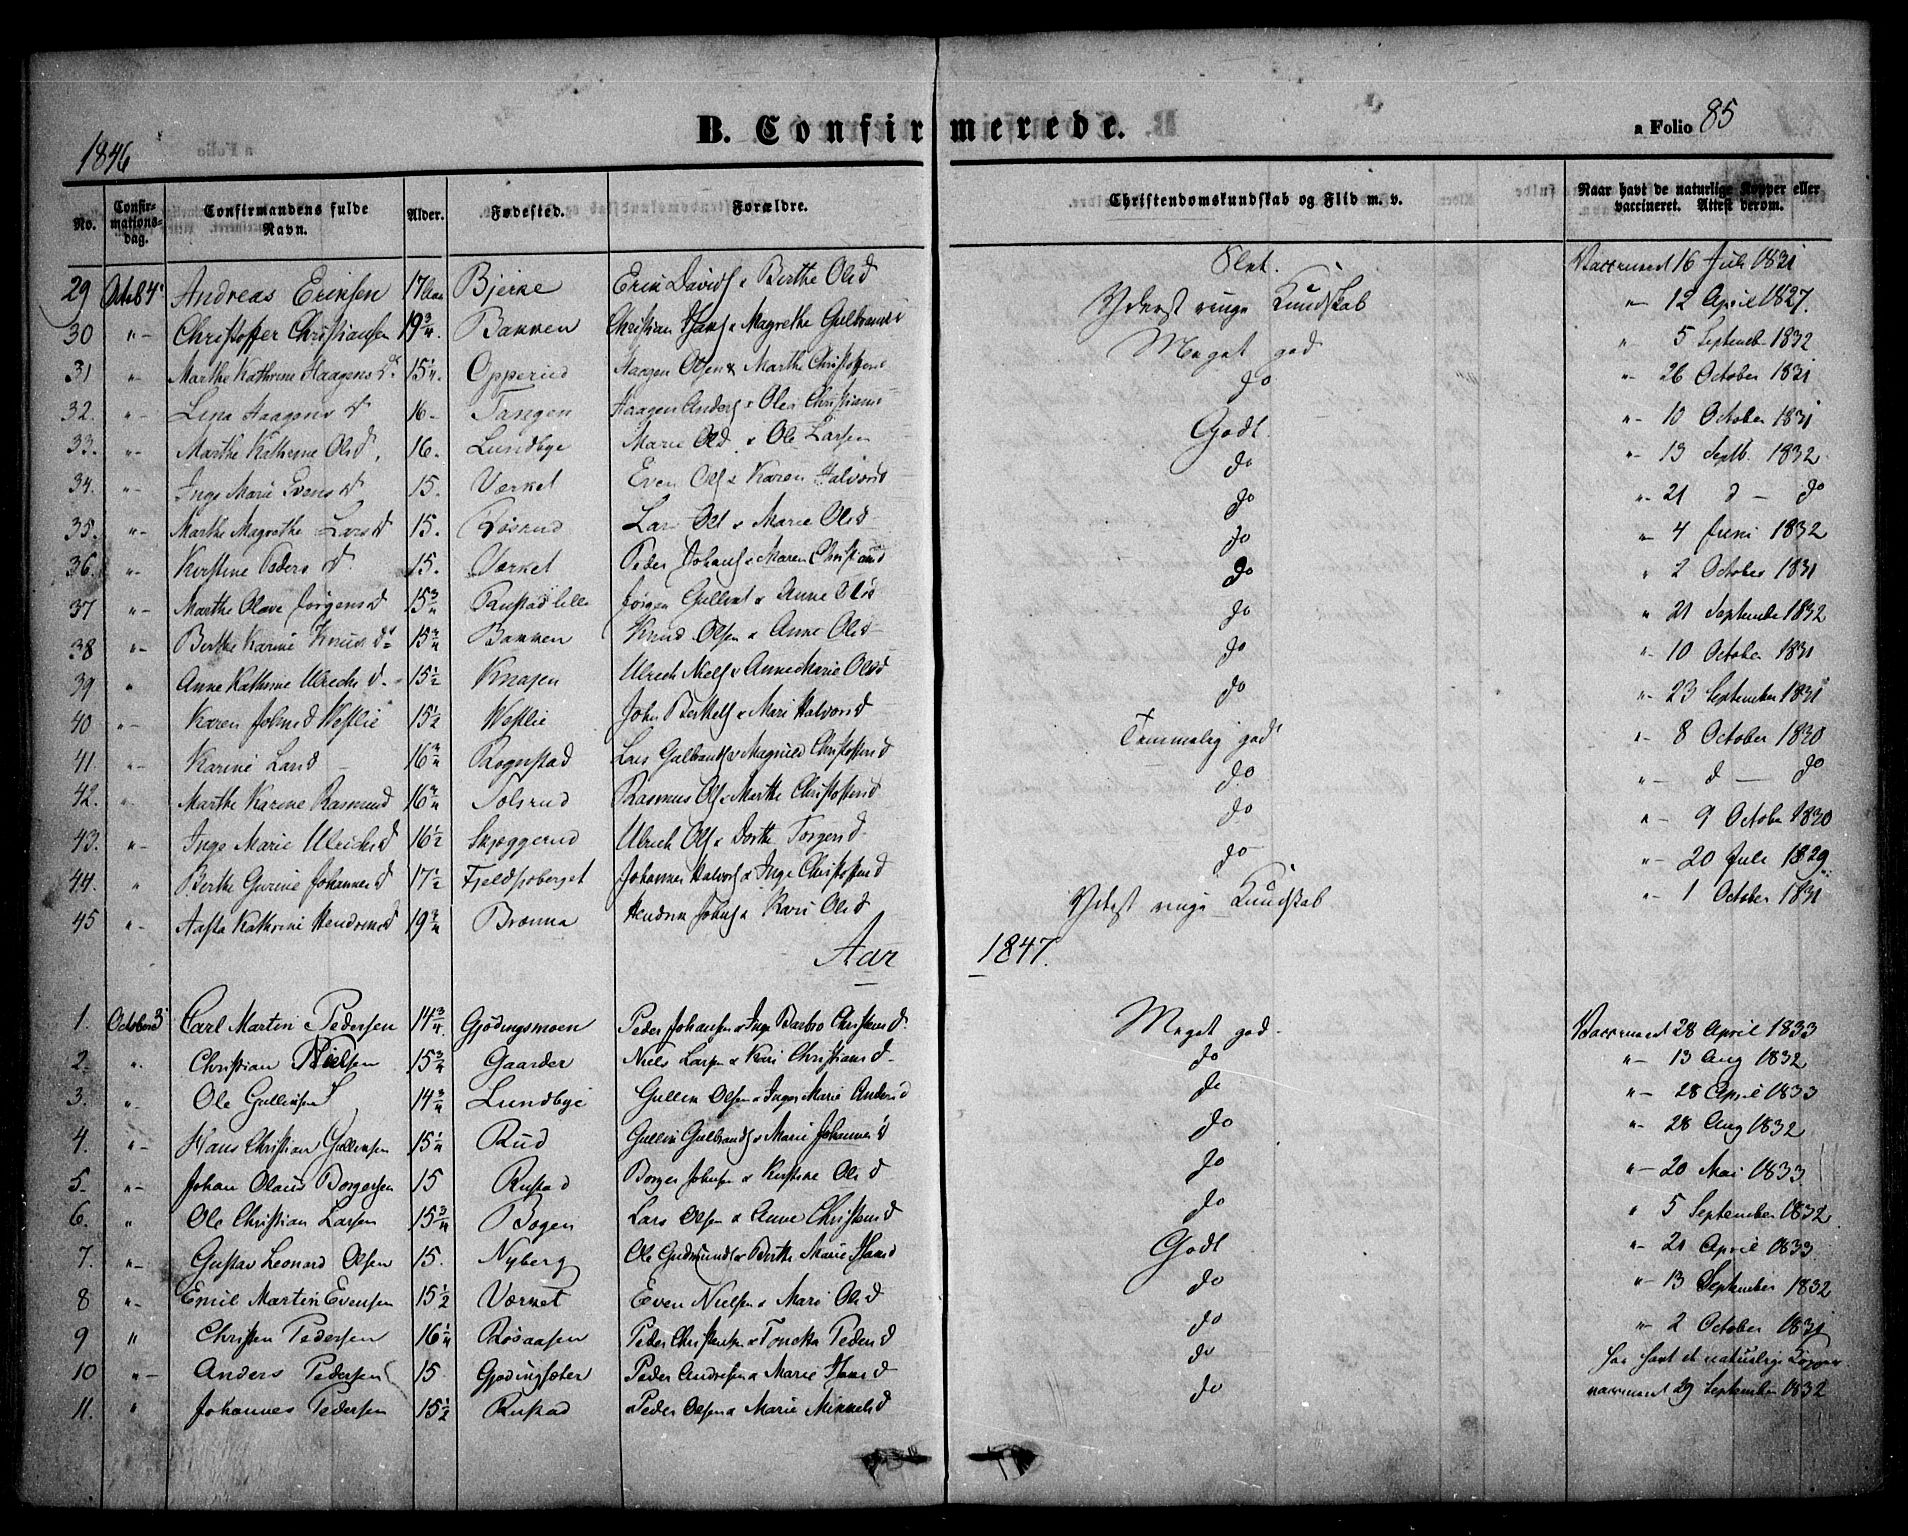 1846
B. Confirmerede.
a Folio 85
No. Confirmationsdag. Confirmandens fulde Navn. Alder. Fødested. Forældre. Christendomskundskab og Flid m. v. Naar havt de naturlige Kopper eller vaccineret. Attest derom.
29 Octob 4 Andreas Eriksen 17 Bjerke Erik Davids Berthe Olsd Slet. 16 Juli 1831
30 "- Christoffer Christiansen 19 3/4 Bakken Christian Hans Magrethe Yderst ringe Kundskab "- 12 April 1827.
31 "- Marthe Kathrine Haagens D. 15 1/4. Opperud Haagen Olsen & Marthe Meget god " 5 Septemb 1832
32. "- Lina Haagens D 16- Tangen Haagen Anders do "- 26 October 1831
33. "- Marthe Kathrine Olsd. 16. Lundbye Marie Olsd. Ole Larsen Godt. "- 10 October 1831
34. "- Inge Marie Evens D 15. Værket Even Ols Karen Halvorsd do "- 13 Septb. 1832
35. "- Marthe Magrethe Lars D 15. Lars Ols Marie Olsd do "- 21 d - do
36. "- Kirstine Peders D. 15. Værket Peder Johans Maren Christiansd do "- 4 Juni 1832
37 "- Marthe Olave Jørgens D 15 3/4 Jørgen Anne Olsd do " 2 October 1831
38 "- Berthe Karine Knuds D 15 3/4 Bakken Knud Olsen Anne Olsd do " 21 September 1832
39 " Anne Kathrine Ulrichs D. 15 1/2 Knasen Ulrich Niels Anne Marie Olsd do "- 10 October 1831
40 "- Karen Johnsd Westlie 15 1/2 Westlie John Mari Halvorsd do "- 23 September 1831
41. "- Karine Larsd 16 3/4 Rognstad Lars Gulbrands Magnild Christoffersd Temmelig godt "- 8 October 1830
42. " Marthe Karine Rasmusd 16 3/4 Tolsrud Rasmus Ols Marthe Christoffersd do "- d - do
43. "- Inge Marie Ulrichsd 16 1/2 Skjeggerud Ulrich Ols Dorthe Torgersd do "- 9 October 1830
44. " Berthe Gurine Johannesd 17 1/2 Johannes Halvors Inge Christoffersd do "- 20 Juli 1829
45 "- Aasta Kathrine 19 3/4 Brænna Kari Olsd Yderst ringe Kundskab "- 1 October 1831
Aar 1847.
1. October 3 Carl Martin Pedersen 14 3/4. Gjødingsmoen Peder Johansen Inge Barbro Meget god. 28 April 1833
2. ". Christian Nielsen 15 3/4 Gaarder Niels Larsen Kari Christiansd do "- 13 Aug 1832
3. " Ole Gullinsen 14 3/4 Lundbye Gullin Olsen Inger Marie Andersd do "- 28 April 1833
4. "- Hans Christian Gullinsen 15 1/4 Rud Gullin Gulbrands Marie Johannesd do "- 28 Aug 1832
5. "- Johan Olaus Borgersen 15 Rustad Borger Johnsen Kirstine Olsd do "- 20 Mai 1833
6. " Ole Christian Larsen 15 3/4 Bogen Lars Olsen Anne do " 5 September 1832
7. "- Gustav Leonard Olsen 15. Nyberg Ole Gudmunds Berthe Marie Hansd Godt "- 21 April 1833
8 "- Emil Martin Evensen 15 1/2 Værket Even Nielsen Mari Olsd do "- 13 September 1832
9 " Christen Pedersen 16 1/4 Røsaasen Peder Pedersd do "- 2 October 1831
10 "- Anders Pedersen 15 Gjødingsæter Peder Andresen Marie Hansd do har havt de naturlige Kopper
11. " Johannes Pedersen 15 1/2 Rustad Peder Olsen Marie Mikkelsd do 29 September 1832